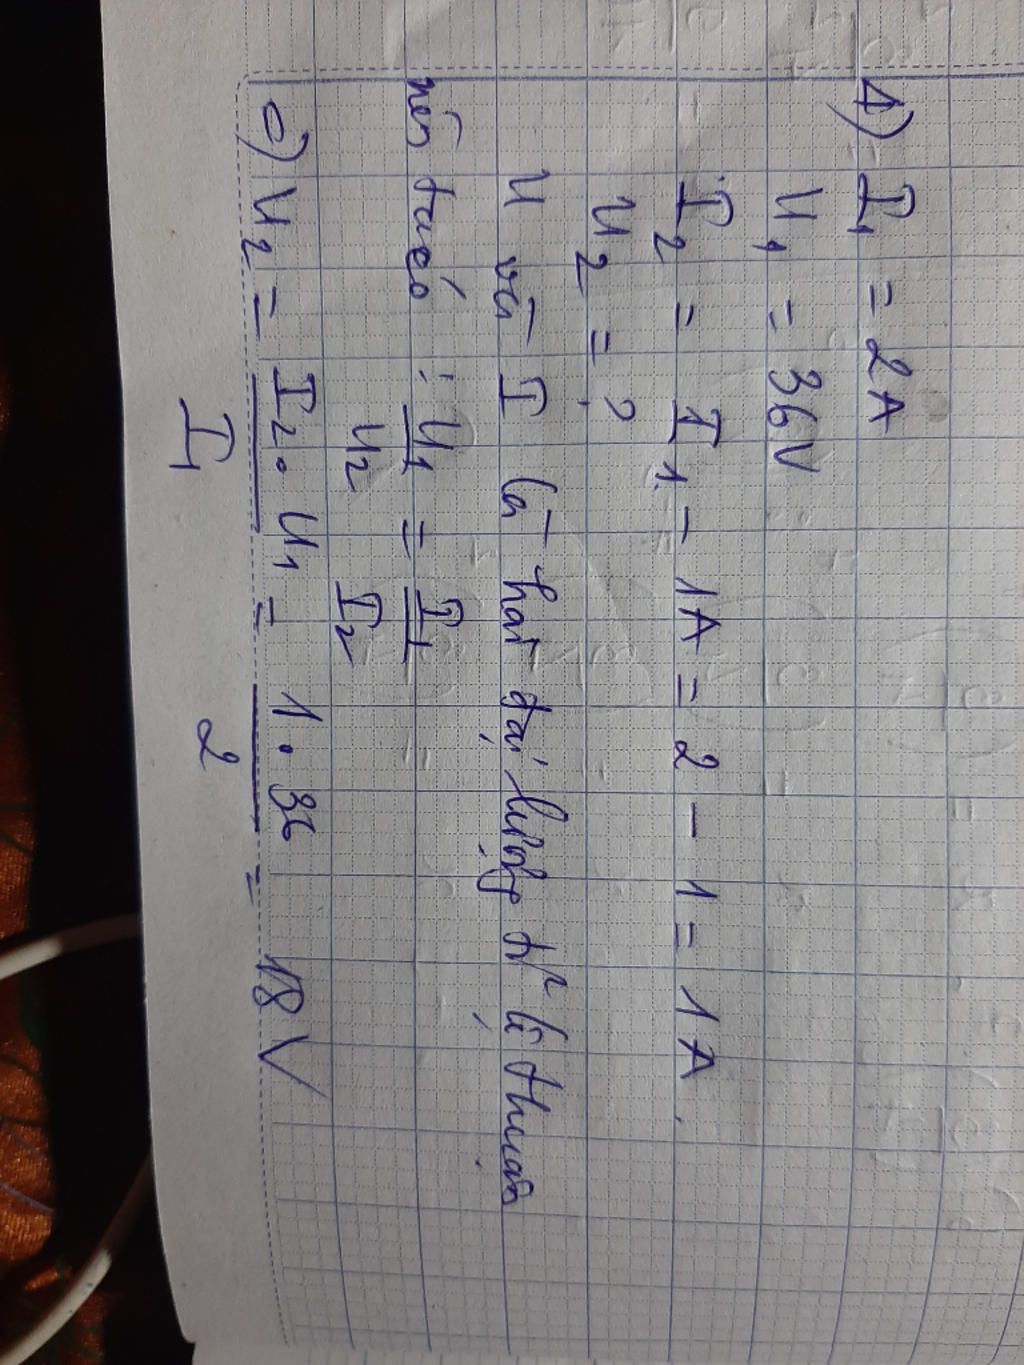 1) I₁ = 2A
U₁ = 36V
I₂ = I₁ - 1A = 2 - 1 = 1A.
U₂ = ?
U và I là hai đại lượng tỉ lệ thuận
nên ta có : U₁/U₂ = I₁/I₂
=) U₂ = I₂ . U₁ / I₁ = 1 . 36 / 2 = 18V